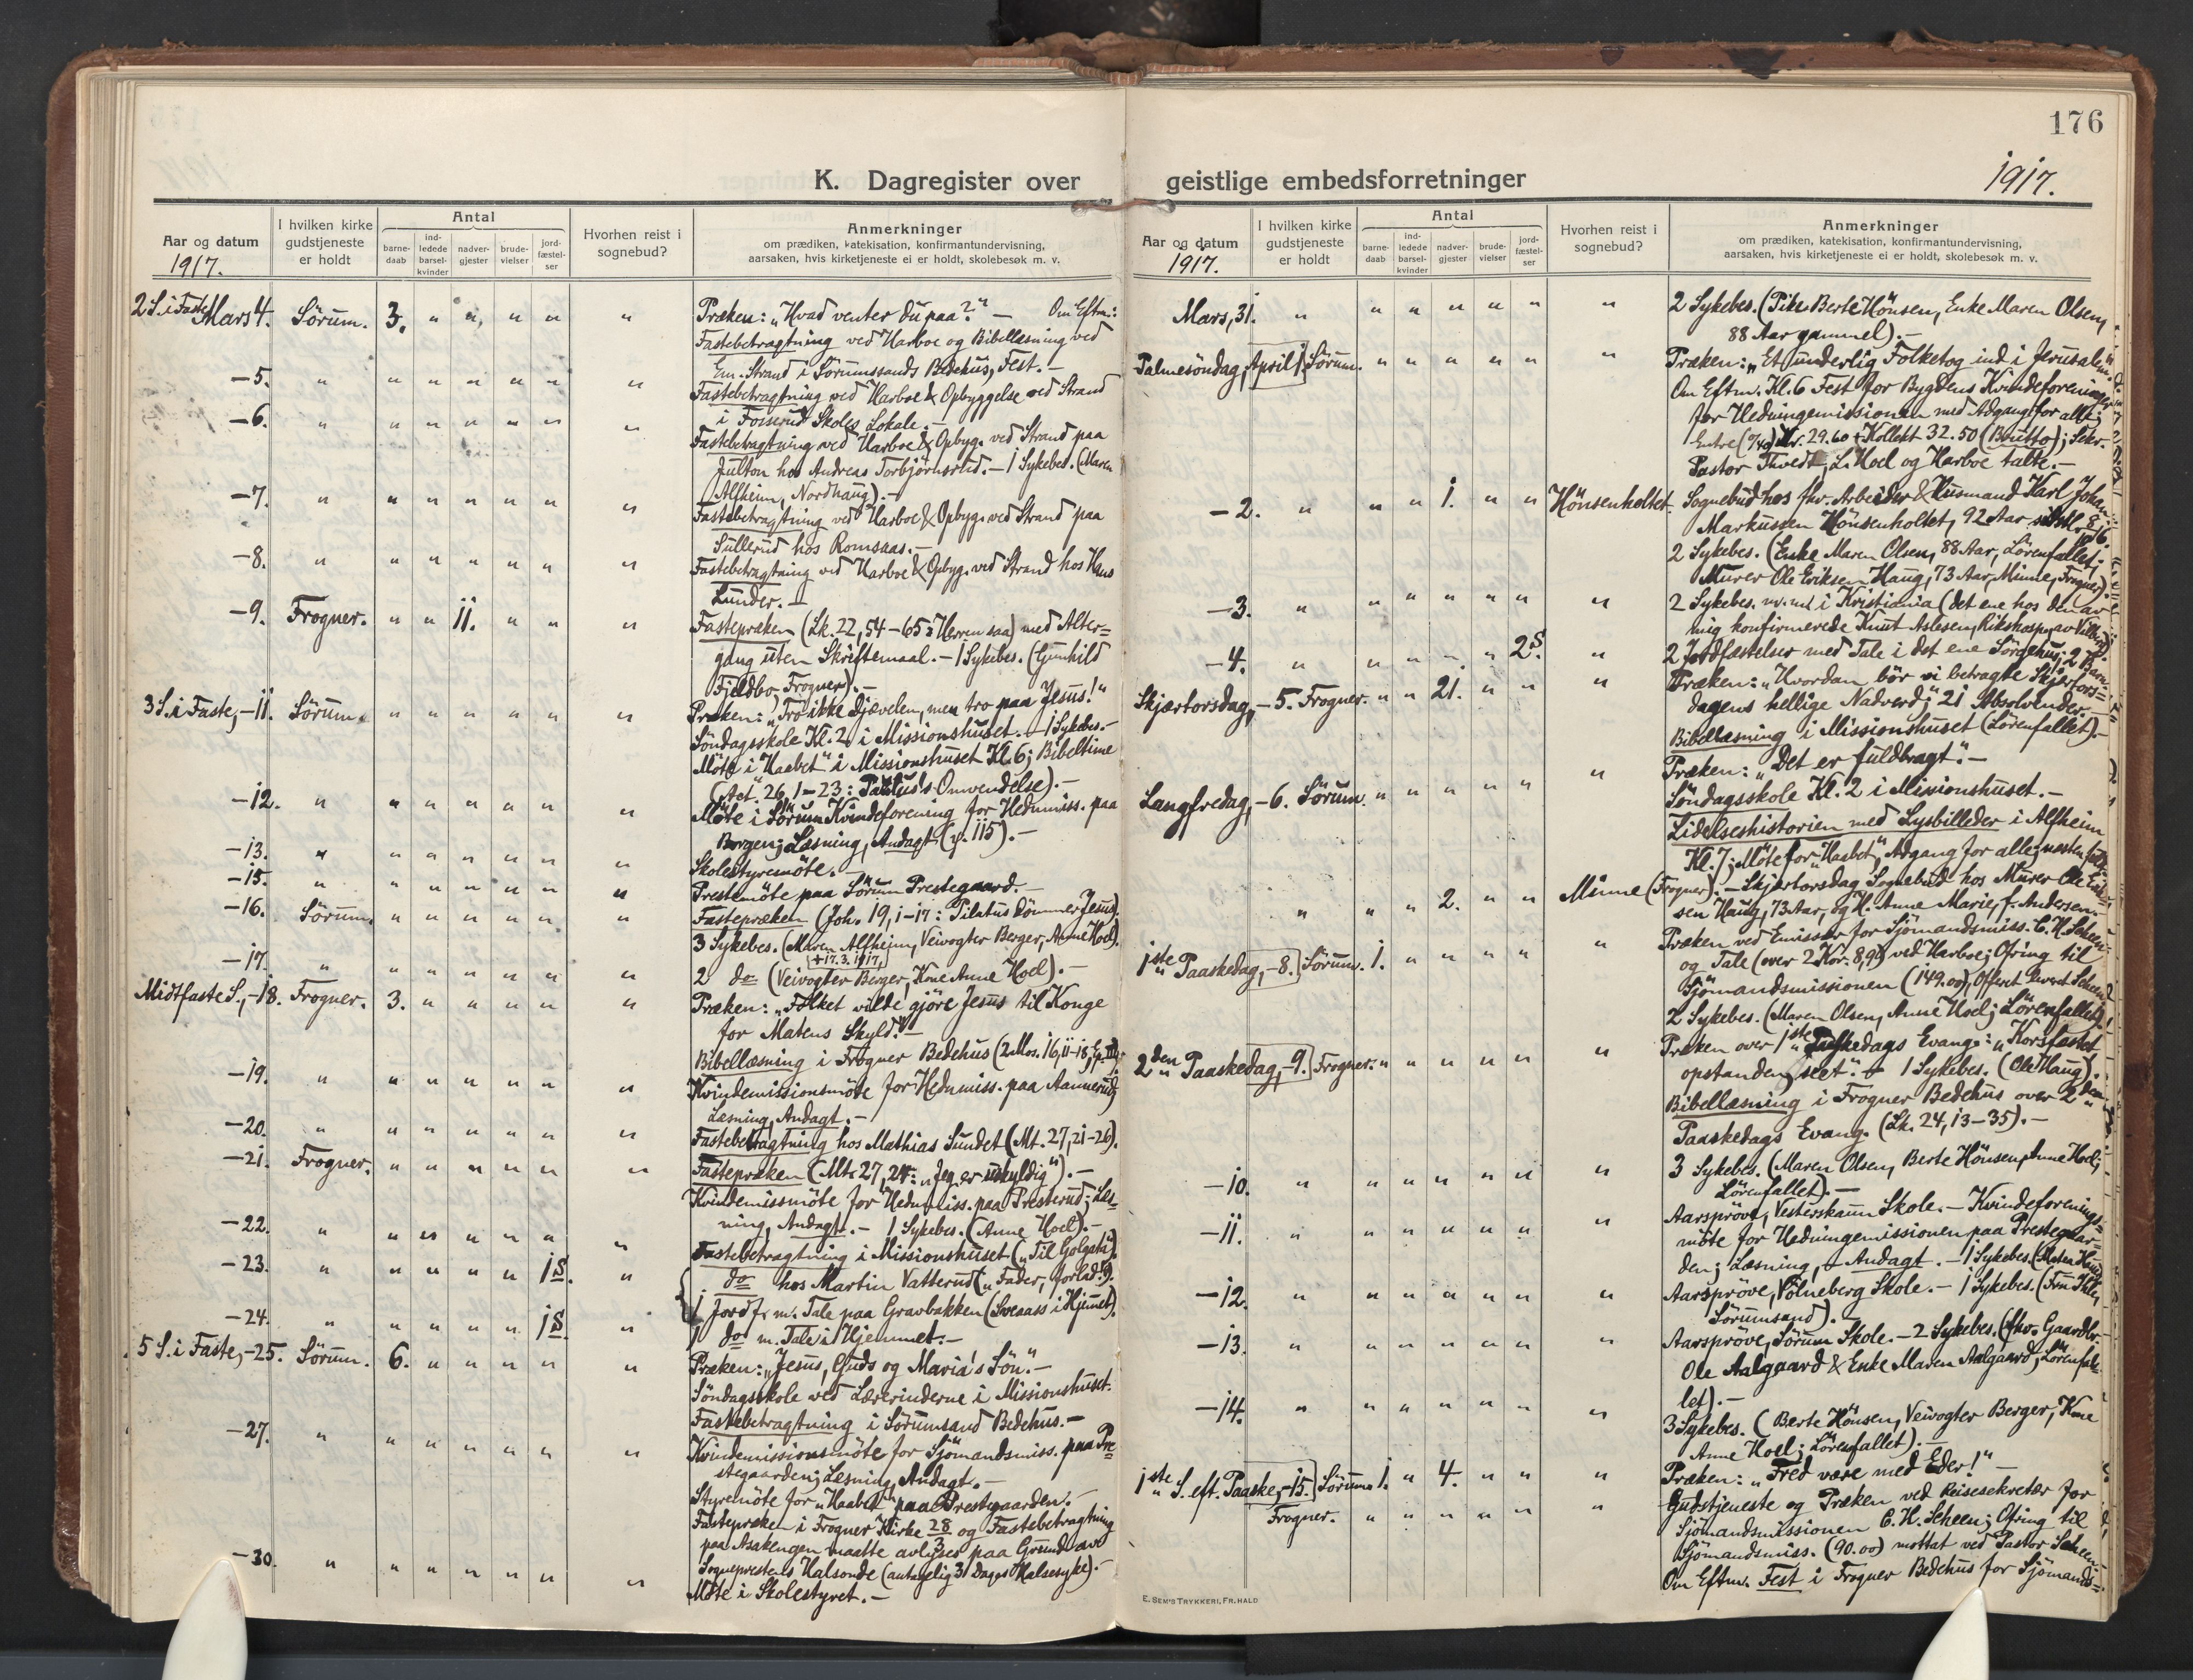 176
1917.
K. Dagregister over geistlige embedsforretninger
Aar og datum
1917.
I hvilken kirke gudstjeneste er holdt
Antal
barnedaab
indledede barselkvinder
nadvergjester
brudevielser
jordfæstelser
Hvorhen reist i sognebud?
Anmerkninger
om prædiken, katekisation, konfirmantundervisning,
aarsaken, hvis kirketjeneste ei er holdt, skolebesøk m. v.
2 S. i Faste Mars 4. Sörum. 3. " " " " " Præken: „Hvad venter du paa?" — Om Eftm.:
Fastebetragtning ved Harboe og Bibellæsning ved
Em. Strand i Sörumsands Bedehus, Fest. —
—5. " " " " " " " Fastebetragtning ved Harboe & Opbyggelse ved Strand
i Fosserud Skoles Lokale. —
—6. " " " " " " " Fastebetragtning ved Harboe & Opbyg. ved Strand paa
Julton hos Andreas Torbjörnsrud. — 1 Sykebes. (Maren
Alfheim, Nordhaug). —
—7. " " " " " " " Fastebetragtning ved Harboe & Opbyg. ved Strand paa
Sullerud hos Romsaas. —
—8. " " " " " " " Fastebetragtning ved Harboe & Opbyg. ved Strand hos Hans
Lunder. —
—9. Frogner. " " 11. " " " Fastepræken (Lk. 22, 54–65: Herren saa) med Alter=
gang uten Skriftemaal. — 1 Sykebes. (Gunhild
Fjeldbo, Frogner). —
3 S. i Faste, —11. Sörum. " " " " " " Præken: „Tro ikke Djævelen, men tro paa Jesus!"
Söndagsskole Kl. 2 i Missionshuset. — 1 Sykebes. —
Möte i „Haabet" i Missionshuset Kl. 6; Bibeltime
(Act. 26, 1–23: Paulus's Omvendelse). —
—12. " " " " " " " Möte i Sörum Kvindeforening for Hedmiss. paa
Borgen; Læsning, Andagt (y. 115). —
—13. " " " " " " " Skolestyremöte. —
—15. " " " " " " " Prestemöte paa Sörum Prestegaard. —
—16. Sörum. " " " " " " Fastepræken (Joh. 19, 1–17: Pilatus dömmer Jesus).
3 Sykebes. (Maren Alfheim, Veivogter Berger, Anne Hoel).
+17.3.1917.
—17. " " " " " " " 2 do (Veivogter Berger, Kone Anne Hoel). —
Midtfaste S., —18. Frogner. 3. " " " " " Præken: „Folket vilde gjöre Jesus til Konge
for Matens Skyld." —
Bibellæsning i Frogner Bedehus (2 Mos. 16, 11–18,
—19. " " " " " " " Kvindemissionsmöte for Hedmiss. paa Aamerud;
Læsning, Andagt. —
—20. " " " " " " " Fastebetragtning hos Mathias Sundet (Mt. 27, 21–26).
—21. Frogner. " " " " " " Fastepræken (Mt. 27, 24: „Jeg er uskyldig"). —
Kvindemissmöte for Hedmiss. paa Presterud; Læs=
ning, Andagt. — 1 Sykebes. (Anne Hoel). —
—22. " " " " " " " Fastebetragtning i Missionshuset („Til Golgata").
—23. " " " " " 1 S. " do hos Martin Vatterud („Fader, forlad!").
1 Jordf. m. Tale paa Gravbakken (Sveaass i Hjemmet).
—24. " " " " " 1 S. " 1 do m. Tale i Hjemmet. —
5 S. i Faste, —25. Sörum. 6. " " " " " Præken: „Jesus, Guds og Maria's Sön". —
Söndagsskole ved Lærerinderne i Missionshuset.
Fastebetragtning i Sörumsand Bedehus. —
—27. " " " " " " " Kvindemissionsmöte for Sjömandsmiss. paa Pre=
stegaarden; Læsning, Andagt. —
Styremöte for „Haabet" paa Prestegaarden. —
Fastepræken i Frogner Kirke 28/3 og Fastebetragtning
paa Asakengen maatte avlyses paa Grund av
Sogneprestens Halsonde (antagelig 31 Dages Halsesyke). —
—30. " " " " " " " Möte i Skolestyret. —
Aar og datum
1917.
I hvilken kirke gudstjeneste er holdt
Antal
barnedaab
indledede barselkvinder
nadvergjester
brudevielser
jordfæstelser
Hvorhen reist i sognebud?
Anmerkninger
om prædiken, katekisation, konfirmantundervisning,
aarsaken, hvis kirketjeneste ei er holdt, skolebesøk m. v.
Mars, 31. " " " " " " " 2 Sykebes. (Pike Berte Hönsen, Enke Maren Olsen,
88 Aar gammel). —
Palmesöndag, April 1. Sörum. " " " " " " Præken: „Et underlig Folketog ind i Jerusalem."
Om Eftm. Kl. 6 Fest for Bygdens Kvindeforeninger
for Hedningemissionen med Adgang for alle;
Entre Kr. 29.60 + Kollekt 32.50 (Brutto); Sekr.
Pastor Thvedt, L. Hoel og Harboe talte. —
—2. " " " 1. " " Hönsenholtet. Sognebud hos fhv. Arbeider & Husmand Karl Johan
Markussen Hönsenholtet, 92 Aar
2 Sykebes. (Enke Maren Olsen, 88 Aar, Lörenfallet;
Murer Ole Eriksen Haug, 73 Aar, Minne, Frogner).
—3. " " " " " " " 2 Sykebes. i Kristiania (det ene hos den av
mig konfirmerede Knut Aslesen, Rikshosp.
—4. " " " " " 2 S. " 2 Jordfæstelser med Tale i det ene Sörgehus; 2 Barn.
Skjærtorsdag, —5. Frogner. " " 21. " " " Præken: „Hvordan bör vi betragte Skjærtors=
dagens hellige Nadverd;" 21 Absolvender. —
Bibellæsning i Missionshuset (Lörenfallet). —
Langfredag, —6. Sörum. " " " " " " Præken: „Det er fuldbragt". —
Söndagsskole Kl. 2 i Missionshuset. —
Lidelseshistorien med Lysbilleder i Alfheim
Kl. 7; Möte for „Haabet", Adgang for alle; næsten
" " " 2. " " Minne (Frogner). — Skjærtorsdag Sognebud hos Murer Ole Erik=
sen Haug, 73 Aar, og H. Anne Marie, f. Andersen. —
1ste Paaskedag, —8. Sörum. 1. " " " " " Præken ved Emissær for Sjömandsmiss. C. H. Scheen;
og Tale (over 2 Kor. 8, 9) ved Harboe; Ofring til
Sjömandsmissionen (149.00),
2 Sykebes. (Maren Olsen, Anne Hoel; Lörenfallet).
2den Paaskedag, —9. Frogner. " " " " " " Præken over 1ste Paaskedags Evang.: „Korsfæstet
1 Sykebes. (Ole Haug).
Bibellæsning i Frogner Bedehus over 2den
Paaskedags Evang. (Lk. 24, 13–35). —
—10. " " " " " " " 3 Sykebes. (Maren Olsen, Berte Hönsen, Anne Hoel;
Lörenfallet). —
—11. " " " " " " " Aarspröve, Vesterskaun Skole. — Kvindeforenings=
möte for Hedningemissionen paa Prestegaar=
den; Læsning, Andagt. — 1 Sykebes.
—12. " " " " " " " Aarspröve, Völneberg Skole. — 1 Sykebes. (Fru Ihle,
Sörumsand). —
—13. " " " " " " " Aarspröve, Sörum Skole. — 2 Sykebes. (fhv. Gaardbr.
Ole Aalgaard & Enke Maren Aalgaard, Lörenfal=
let). —
—14. " " " " " " " 3 Sykebes. (Berte Hönsen, Veivogter Berger, Kone
Anne Hoel; Lörenfallet). —
1ste S. eft. Paaske, —15. Sörum. 1. " 4. " " " Præken: „Fred være med Eder!" —
Frogner. " " " " " " Gudstjeneste og Præken ved Reisesekretær for
Sjömandsmissionen C. H. Scheen; Ofring til
Sjömandsmiss. (90.00) mottat ved Pastor Scheen.
Om Eftm. Fest i Frogner Bedehus for Sjömands=
E. SEM'S TRYKKERI, FR.HALD